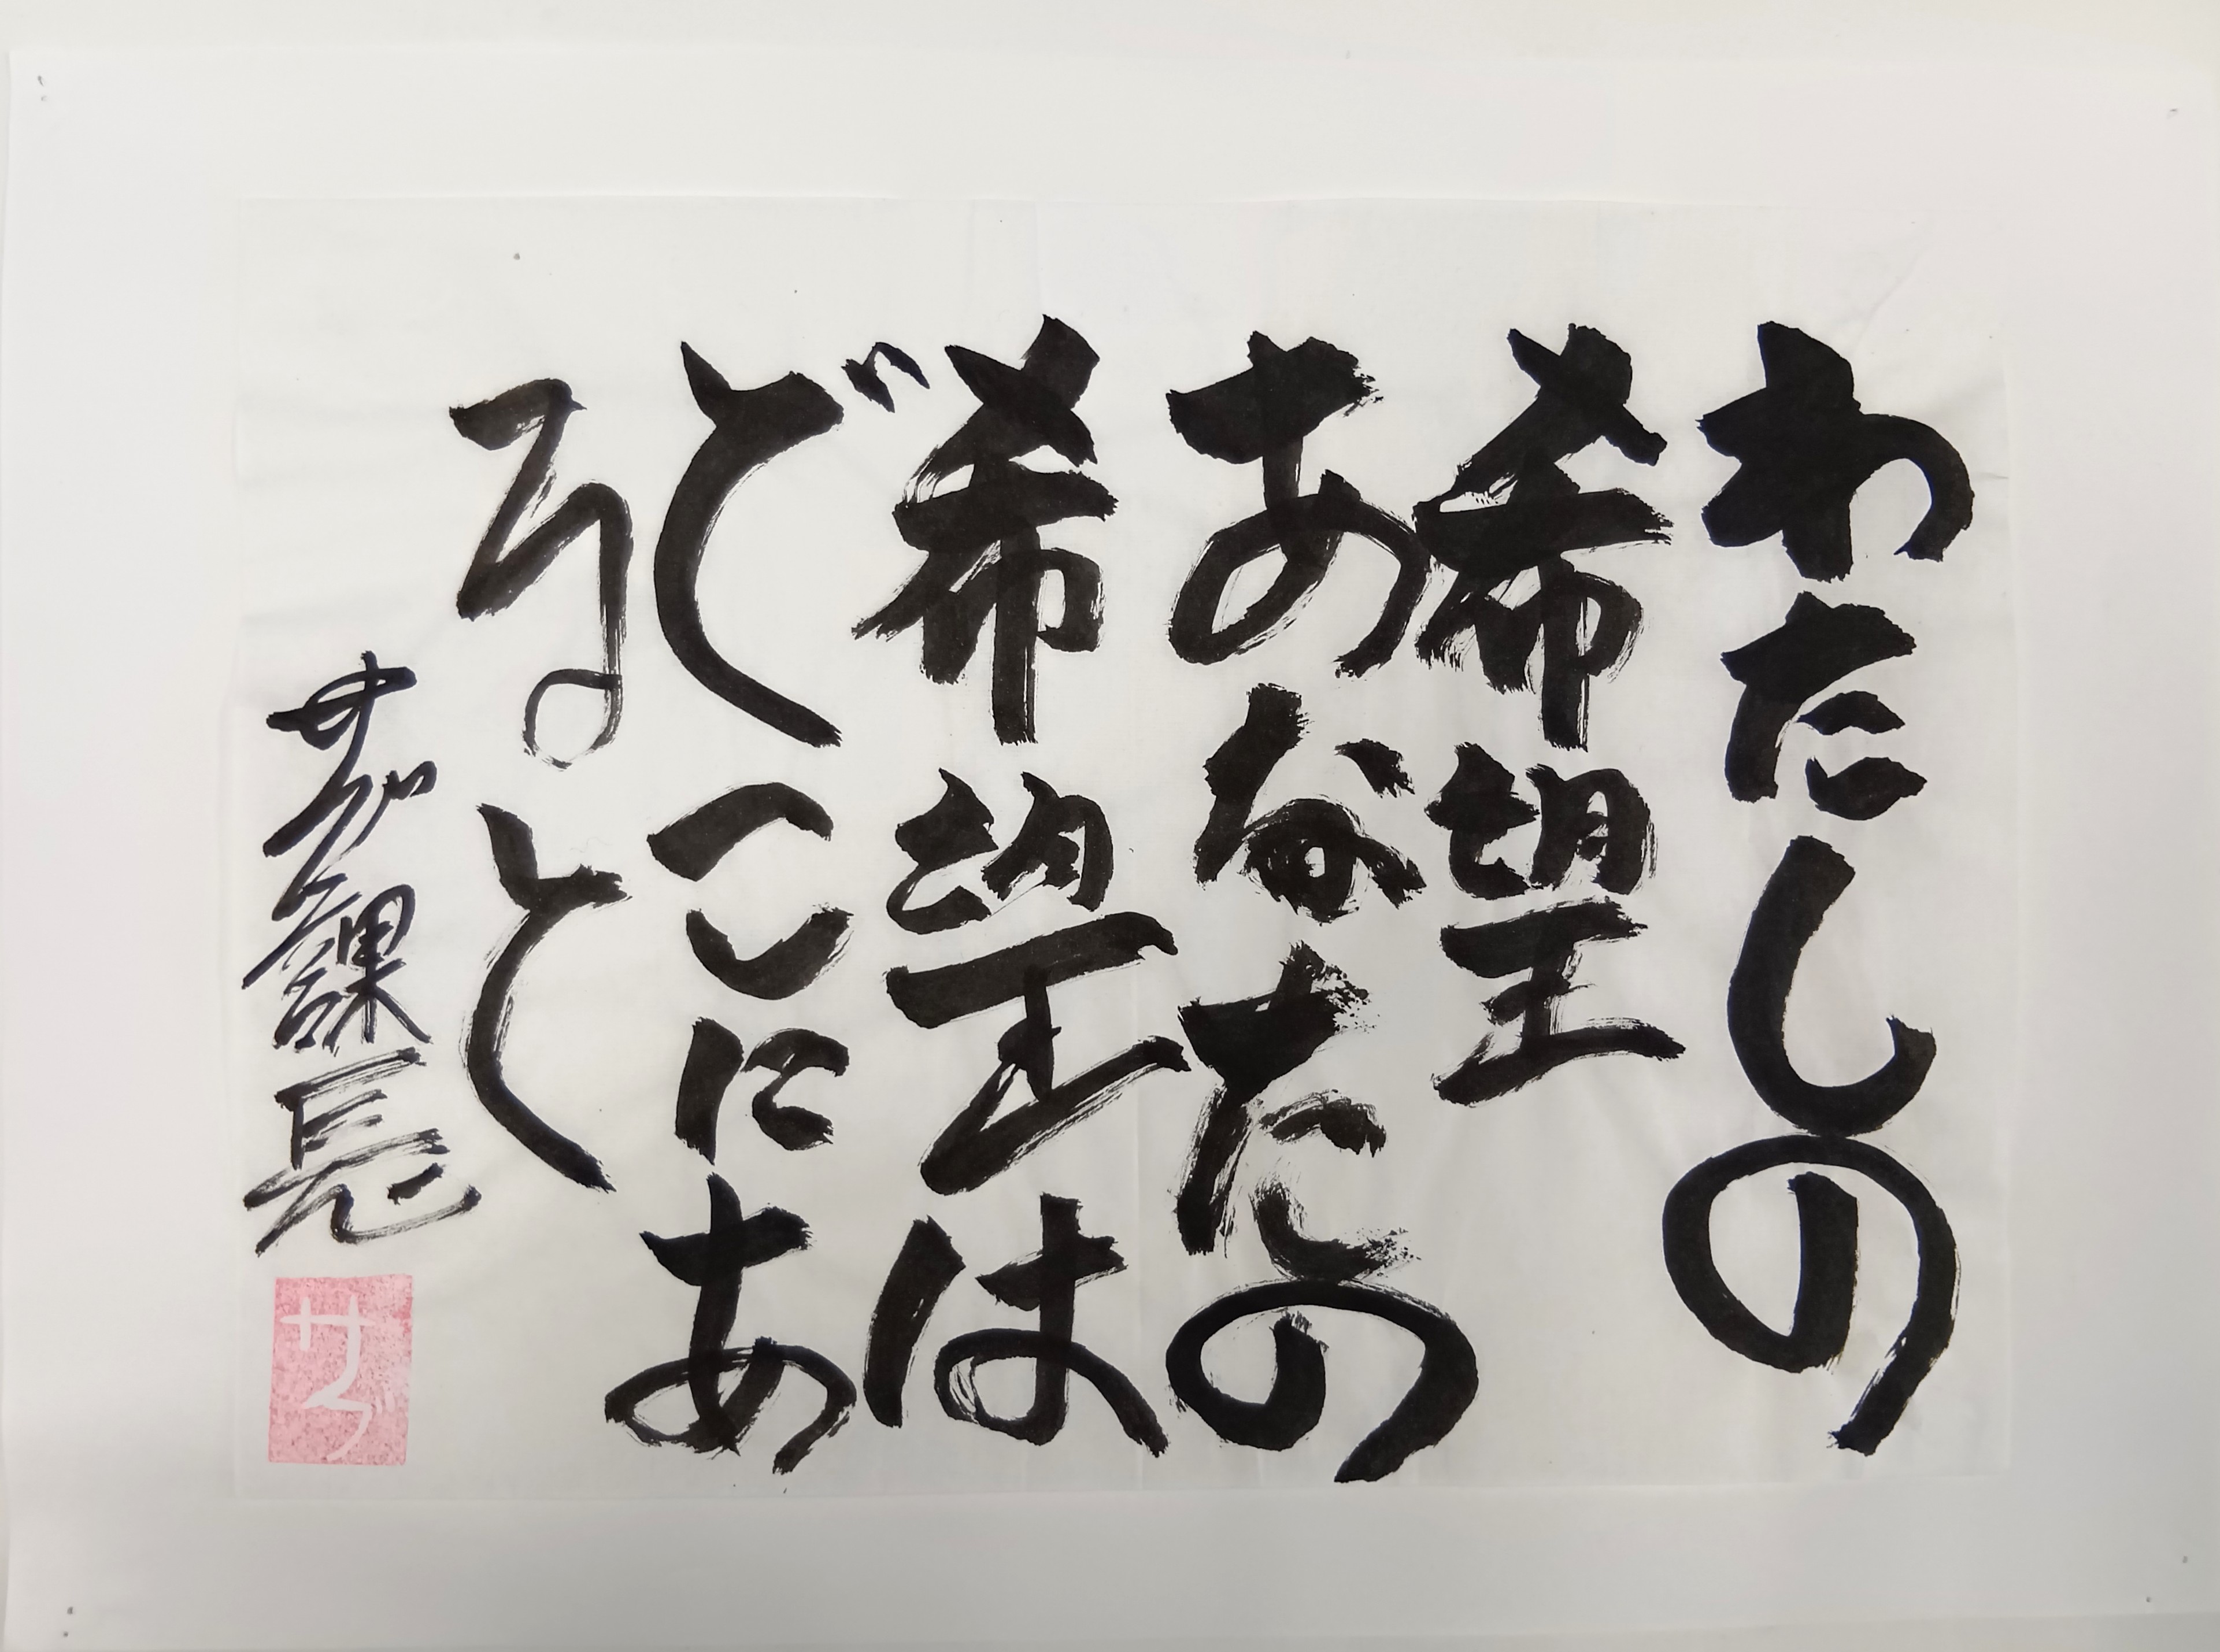 わたしの
希望
あなたの
希望は
どこにあ
ると
サブ課長
サブ